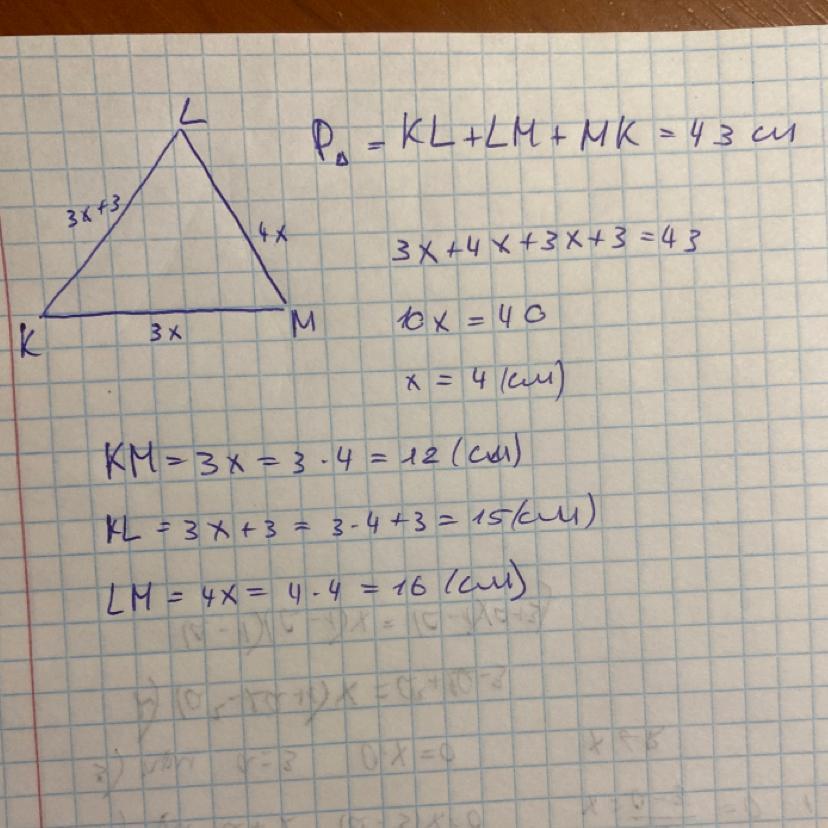 L
P△ = KL+LM+MK = 43 см
3x+3
4x
3x+4x+3x+3=43
K
3x
M
10x = 40
x = 4 (см)
KM = 3x = 3·4 = 12 (см)
KL = 3x+3 = 3·4+3 = 15(см)
LM = 4x = 4·4 = 16 (см)